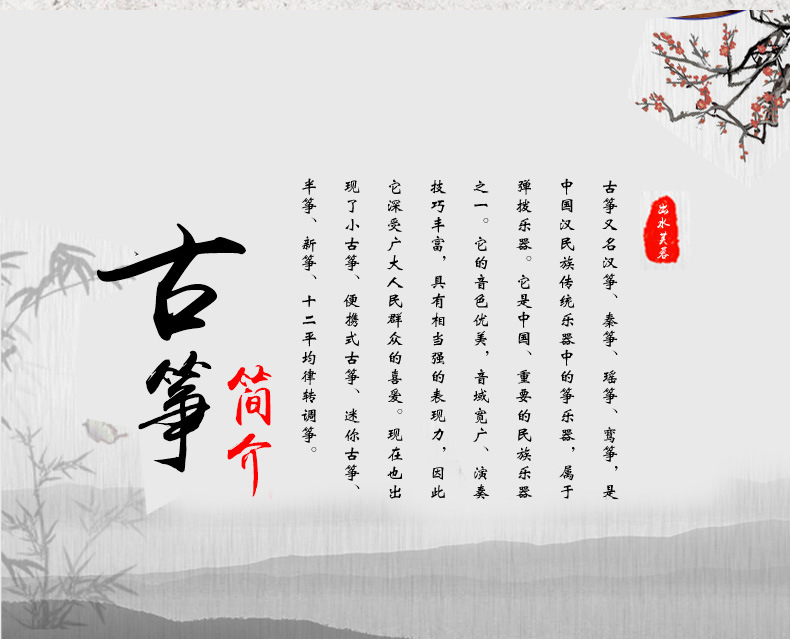 出水芙蓉
古筝又名汉筝、秦筝、瑶筝、鸾筝，是
中国汉民族传统乐器中的筝乐器，属于
弹拨乐器。它是中国、重要的民族乐器
之一。它的音色优美，音域宽广、演奏
技巧丰富，具有相当强的表现力，因此
它深受广大人民群众的喜爱。现在也出
现了小古筝、便携式古筝、迷你古筝、
半筝、新筝、十二平均律转调筝。
古筝
简介